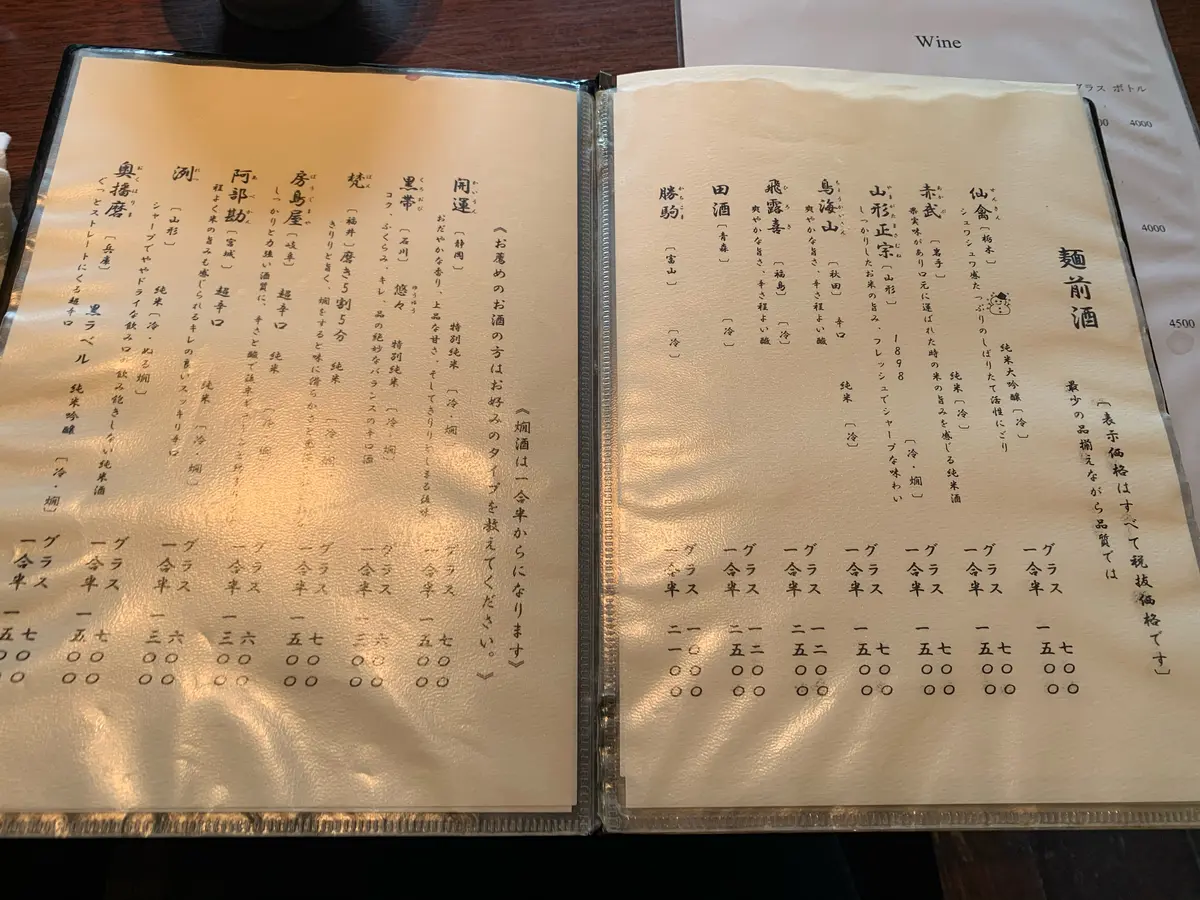 Wine
グラス ボトル
4000
4000
4500
麺前酒
〔表示価格はすべて税抜価格です〕
最少の品揃えながら品質では
仙禽 〔栃木〕 純米大吟醸〔冷〕
せんきん
シュワシュワ感たっぷりのしぼりたて活性にごり
グラス 七〇〇
一合半 一五〇〇
赤武 〔岩手〕 純米〔冷〕
あかぶ
果実味があり口元に運ばれた時の米の旨みを感じる純米酒
グラス 七〇〇
一合半 一五〇〇
山形正宗 〔山形〕 1898 〔冷・燗〕
やまがたまさむね
しっかりしたお米の旨み、フレッシュでシャープな味わい
グラス 七〇〇
一合半 一五〇〇
鳥海山 〔秋田〕 辛口 純米 〔冷〕
ちょうかいさん
爽やかな旨さ、辛さ程よい酸
グラス 七〇〇
一合半 一五〇〇
飛露喜 〔福島〕 〔冷〕
ひろき
爽やかな旨さ、辛さ程よい酸
グラス 一二〇〇
一合半 二五〇〇
田酒 〔青森〕 〔冷〕
グラス 一二〇〇
一合半 二五〇〇
勝駒 〔富山〕 〔冷〕
かちこま
グラス 一〇〇〇
一合半 二一〇〇
《燗酒は一合半からになります》
《お薦めのお酒の方はお好みのタイプを教えてください。》
開運 〔静岡〕 特別純米 〔冷・燗〕
かいうん
おだやかな香り、上品な甘さ、そしてきりりとしまる後味
グラス 七〇〇
一合半 一五〇〇
黒帯 〔石川〕 悠々 特別純米 〔冷・燗〕
くろおび
ゆうゆう
コク、ふくらみ、キレ、品の絶妙なバランスの辛口酒
グラス 六〇〇
一合半 一三〇〇
梵 〔福井〕磨き5割5分 純米 〔冷・燗〕
ぼん
きりりと旨く、燗をすると味に滑らかさと
グラス 七〇〇
一合半 一五〇〇
房島屋 〔岐阜〕 超辛口 純米 〔冷・燗〕
ぼうじまや
しっかりと力強い酒質に、辛さと酸で
グラス 六〇〇
一合半 一三〇〇
阿部勘 〔宮城〕 超辛口 純米 〔冷・燗〕
あべかん
程よく米の旨みも感じられるキレの良いスッキリ辛口
グラス 六〇〇
一合半 一三〇〇
洌 〔山形〕 純米〔冷・ぬる燗〕
れつ
シャープでややドライな飲み口の飲み飽きしない純米酒
グラス 七〇〇
一合半 一五〇〇
奥播磨 〔兵庫〕 黒ラベル 純米吟醸 〔冷・燗〕
おくはりま
ぐっとストレートにくる超辛口
グラス 七〇〇
一合半 一五〇〇